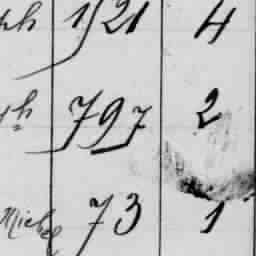 ph 1521 4
ph 797 2
Michel 73 1